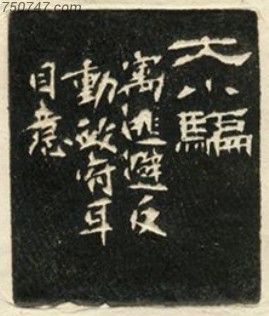 750747.com
大小騙
寓逃避反
動政府耳
目意